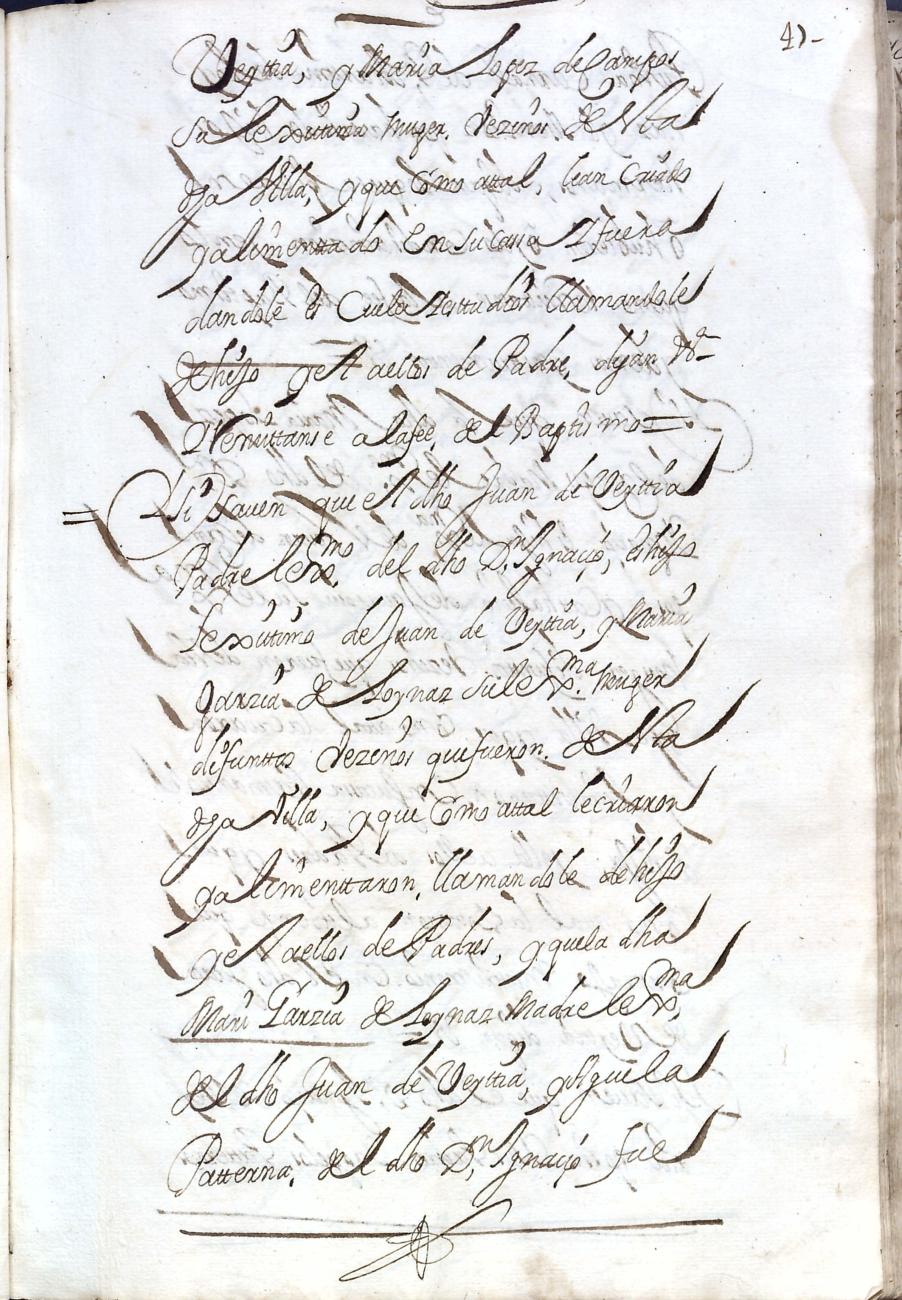 41-
Veyttia, y Maria Lopez de Campos
su lexitima muger. Vezinos de Nta
dha Villa, y que Como attal, lean Criado
y alimenttado en su cassa y fuera
dandole esCuela y esttudios llamandole
de hijo y el aellos de Padre, digan &a
y Remittanse a la fee, del Baptismo =
= Si saven que el dho Juan de Veyttia
Padre lexmo. del dho Dn. Ygnacio, es hijo
lexitimo de Juan de Veyttia, y Maria
Garzia de Loynaz su lexma. muger
difunttos Vezinos que fueron de Nta
dha Villa, y que Como attal le criaron
y alimenttaron, llamandole de hijo
y el aellos de Padres, y que la dha
Mari Garzia de Loynaz Madre lexma,
del dho Juan de Veyttia, y Aguela
Patterna, del dho Dn. Ygnacio fue